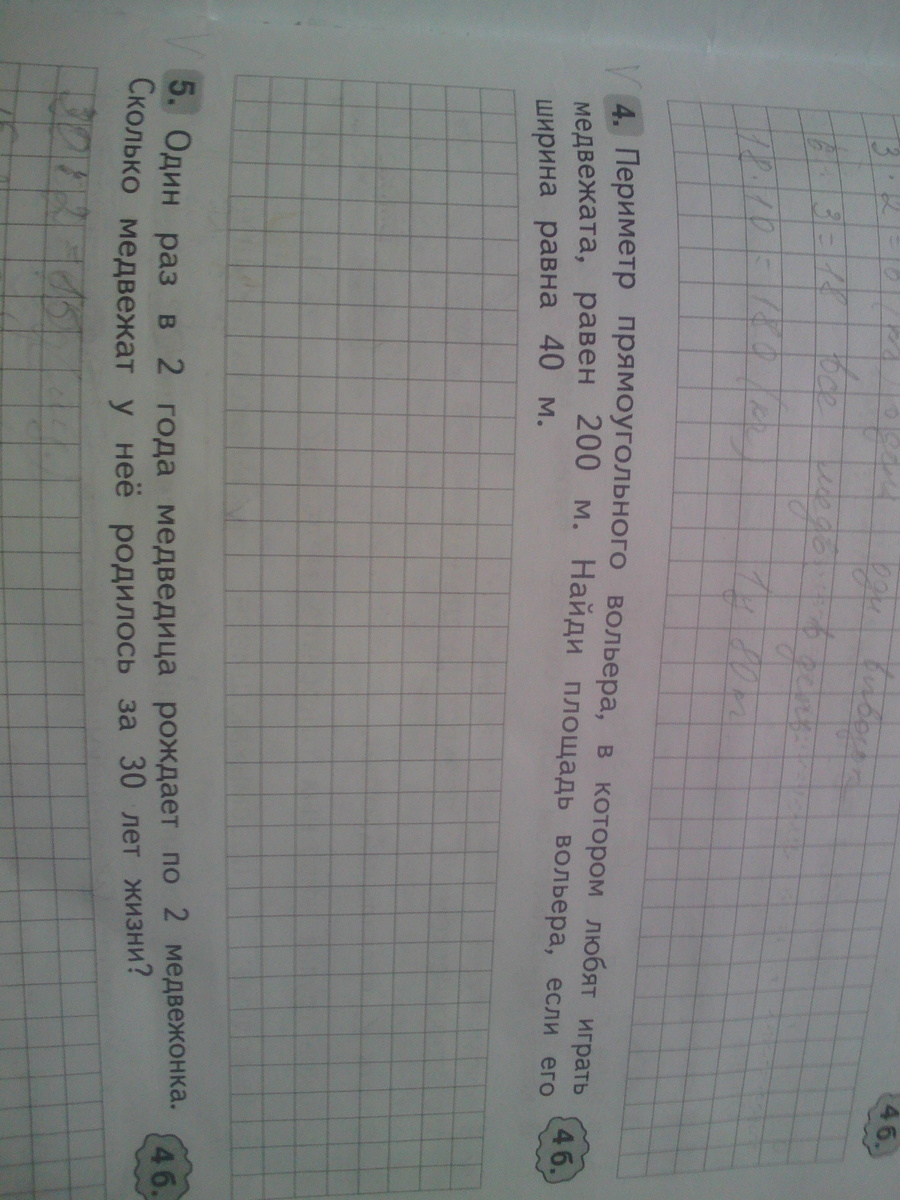 3 · 2 = 6
6 · 3 = 18 все
18 · 10 = 180 (кг) 1ц 80 кг
4 б.
4. Периметр прямоугольного вольера, в котором любят играть
медвежата, равен 200 м. Найди площадь вольера, если его
ширина равна 40 м.
4 б.
5. Один раз в 2 года медведица рождает по 2 медвежонка.
Сколько медвежат у неё родилось за 30 лет жизни?
4 б.
30 : 2 = 15